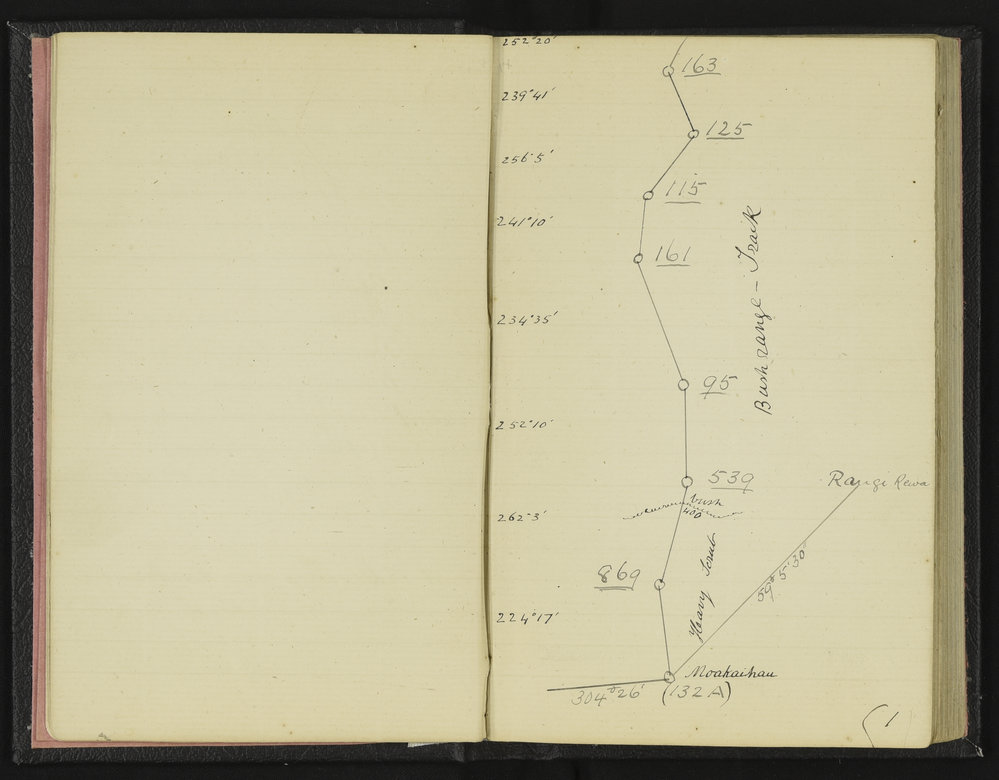 252°20'
163
239°41'
125
256°5'
115
241°10'
161
Bush range - Track
234°35'
95
252°10'
539
Rangi Rewa
bush
400
262°3'
869
Heavy Scrub
59°5'30"
224°17'
Moakaihau
304°26' (132A)
1